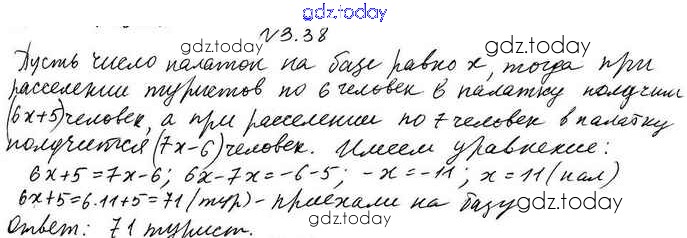 gdz.today
№3.38
gdz.today gdz.today
Пусть число палаток на базе равно x, тогда при
расселении туристов по 6 человек в палатку получим
(6x+5) человек, а при расселении по 7 человек в палатку
gdz.today gdz.today
получится (7x-6) человек. Имеем уравнение:
6x+5=7x-6; 6x-7x=-6-5; -x=-11; x=11 (пал)
6x+5=6·11+5=71 (тур) - приехали на базу
gdz.today gdz.today
Ответ: 71 турист.
gdz.today